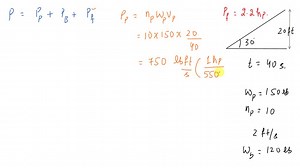 P = P_P + P_B + P_f
P_P = n_P W_P V_P
= 10 × 150 × 20/40
= 750 lb ft/s (1 hp/550
P_f = 2.2 hp
20 ft
30°
t = 40 s
W_P = 150 lb
n_P = 10
2 ft/s
W_B = 120 lb